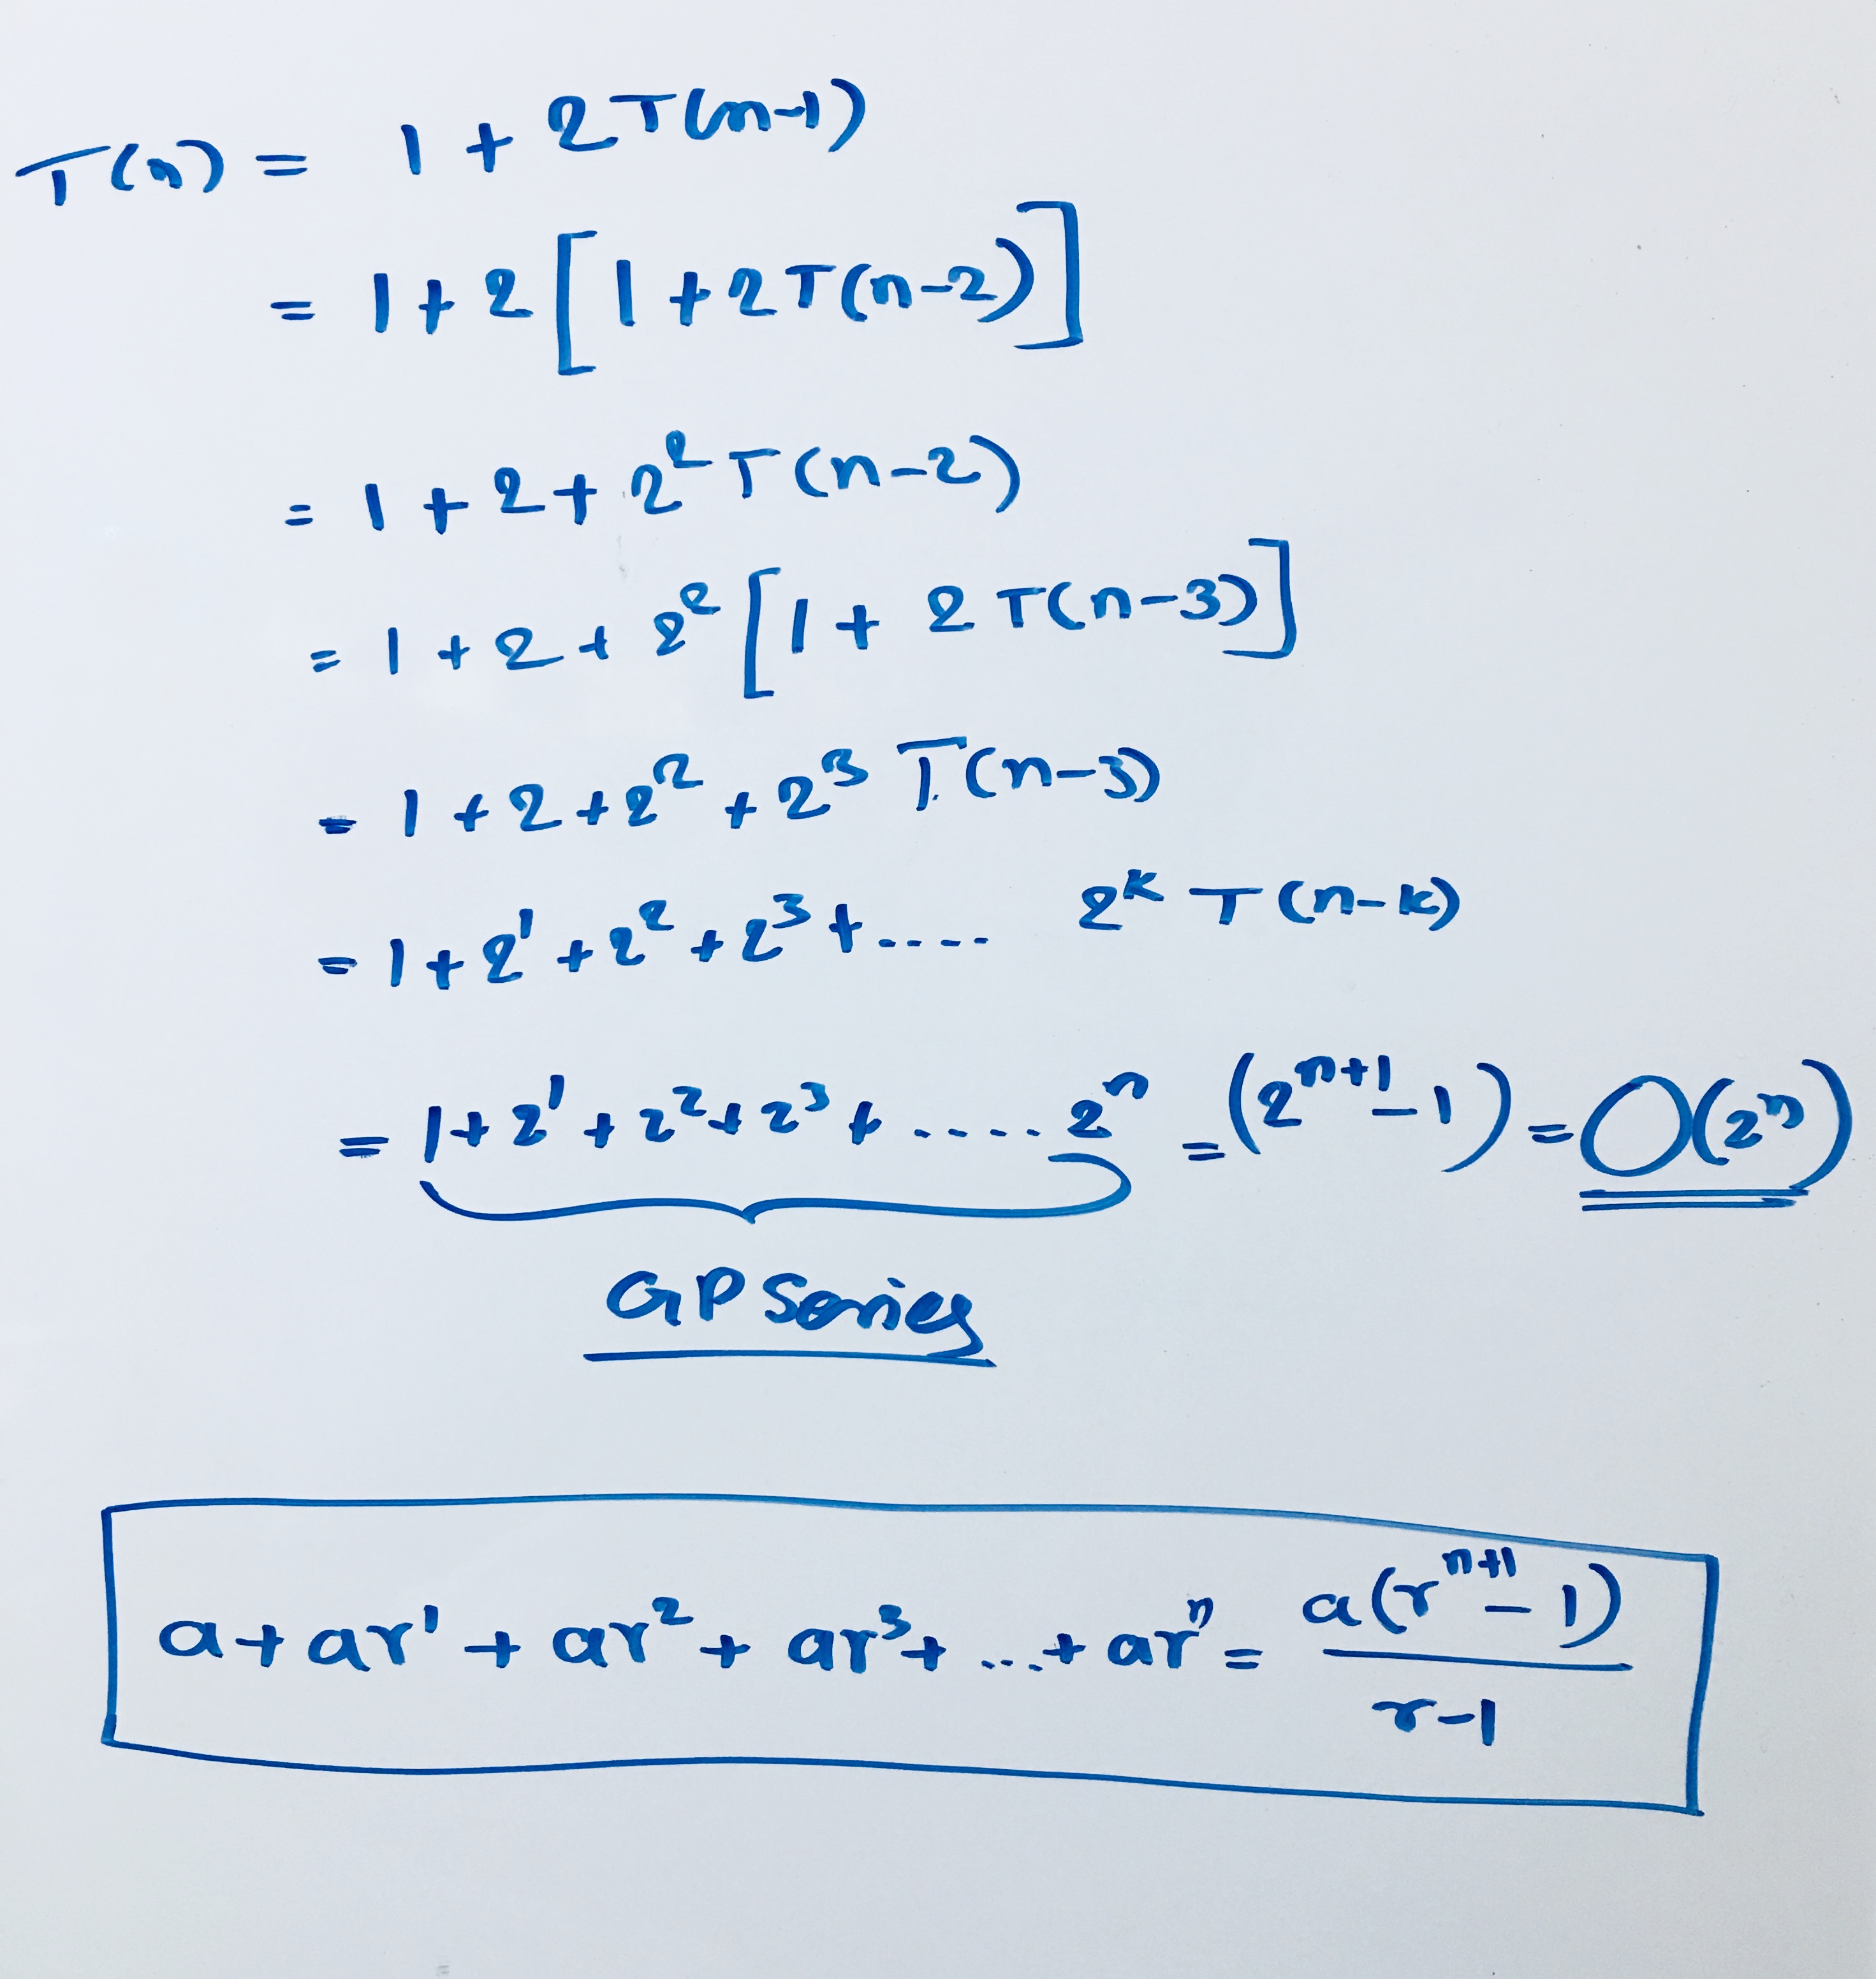 T(n) = 1 + 2T(n-1)
= 1 + 2[1 + 2T(n-2)]
= 1 + 2 + 2² T(n-2)
= 1 + 2 + 2² [1 + 2 T(n-3)]
= 1 + 2 + 2² + 2³ T(n-3)
= 1 + 2¹ + 2² + 2³ + ..... 2ᵏ T(n-k)
= 1 + 2¹ + 2² + 2³ + ..... 2ⁿ = (2ⁿ⁺¹ - 1) = O(2ⁿ)
GP Series
a + ar¹ + ar² + ar³ + ... + arⁿ = a(rⁿ⁺¹ - 1)
r-1